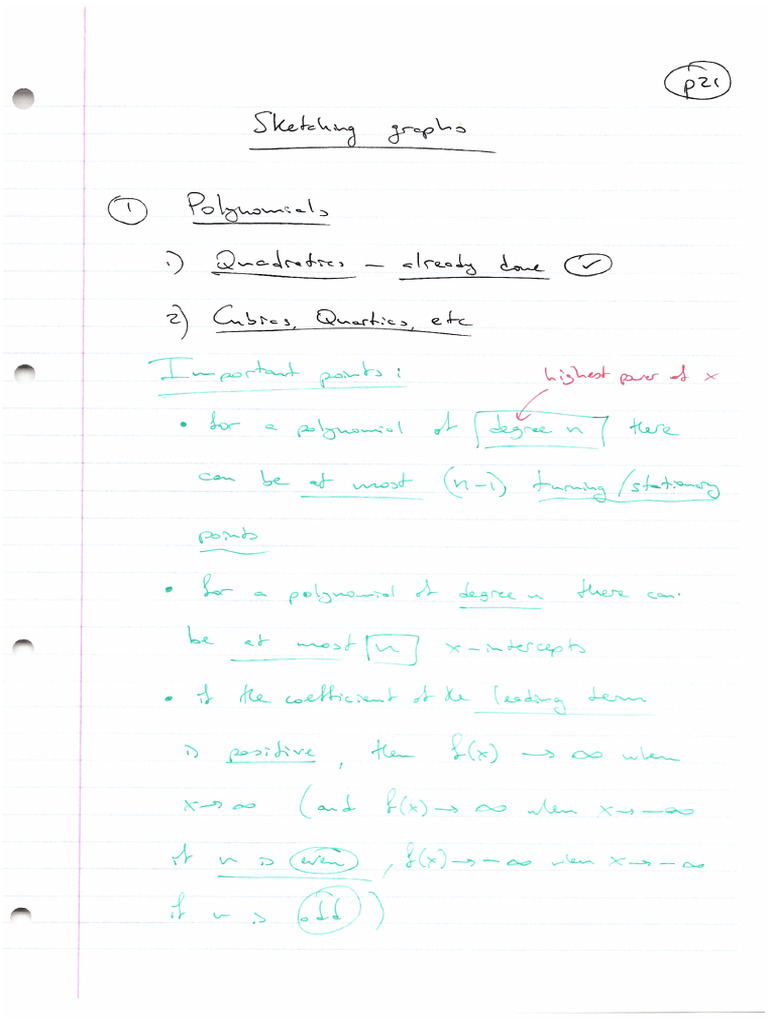 p21
Sketching graphs
① Polynomials
1) Quadratics – already done ✓
2) Cubics, Quartics, etc
Important points :
highest power of x
• for a polynomial of degree n there
can be at most (n-1) turning/stationary
points
• for a polynomial of degree n there can
be at most n x-intercepts
• if the coefficient of the leading term
is positive, then f(x) → ∞ when
x → ∞ (and f(x) → ∞ when x → -∞
if n is even, f(x) → -∞ when x → -∞
if n is odd)